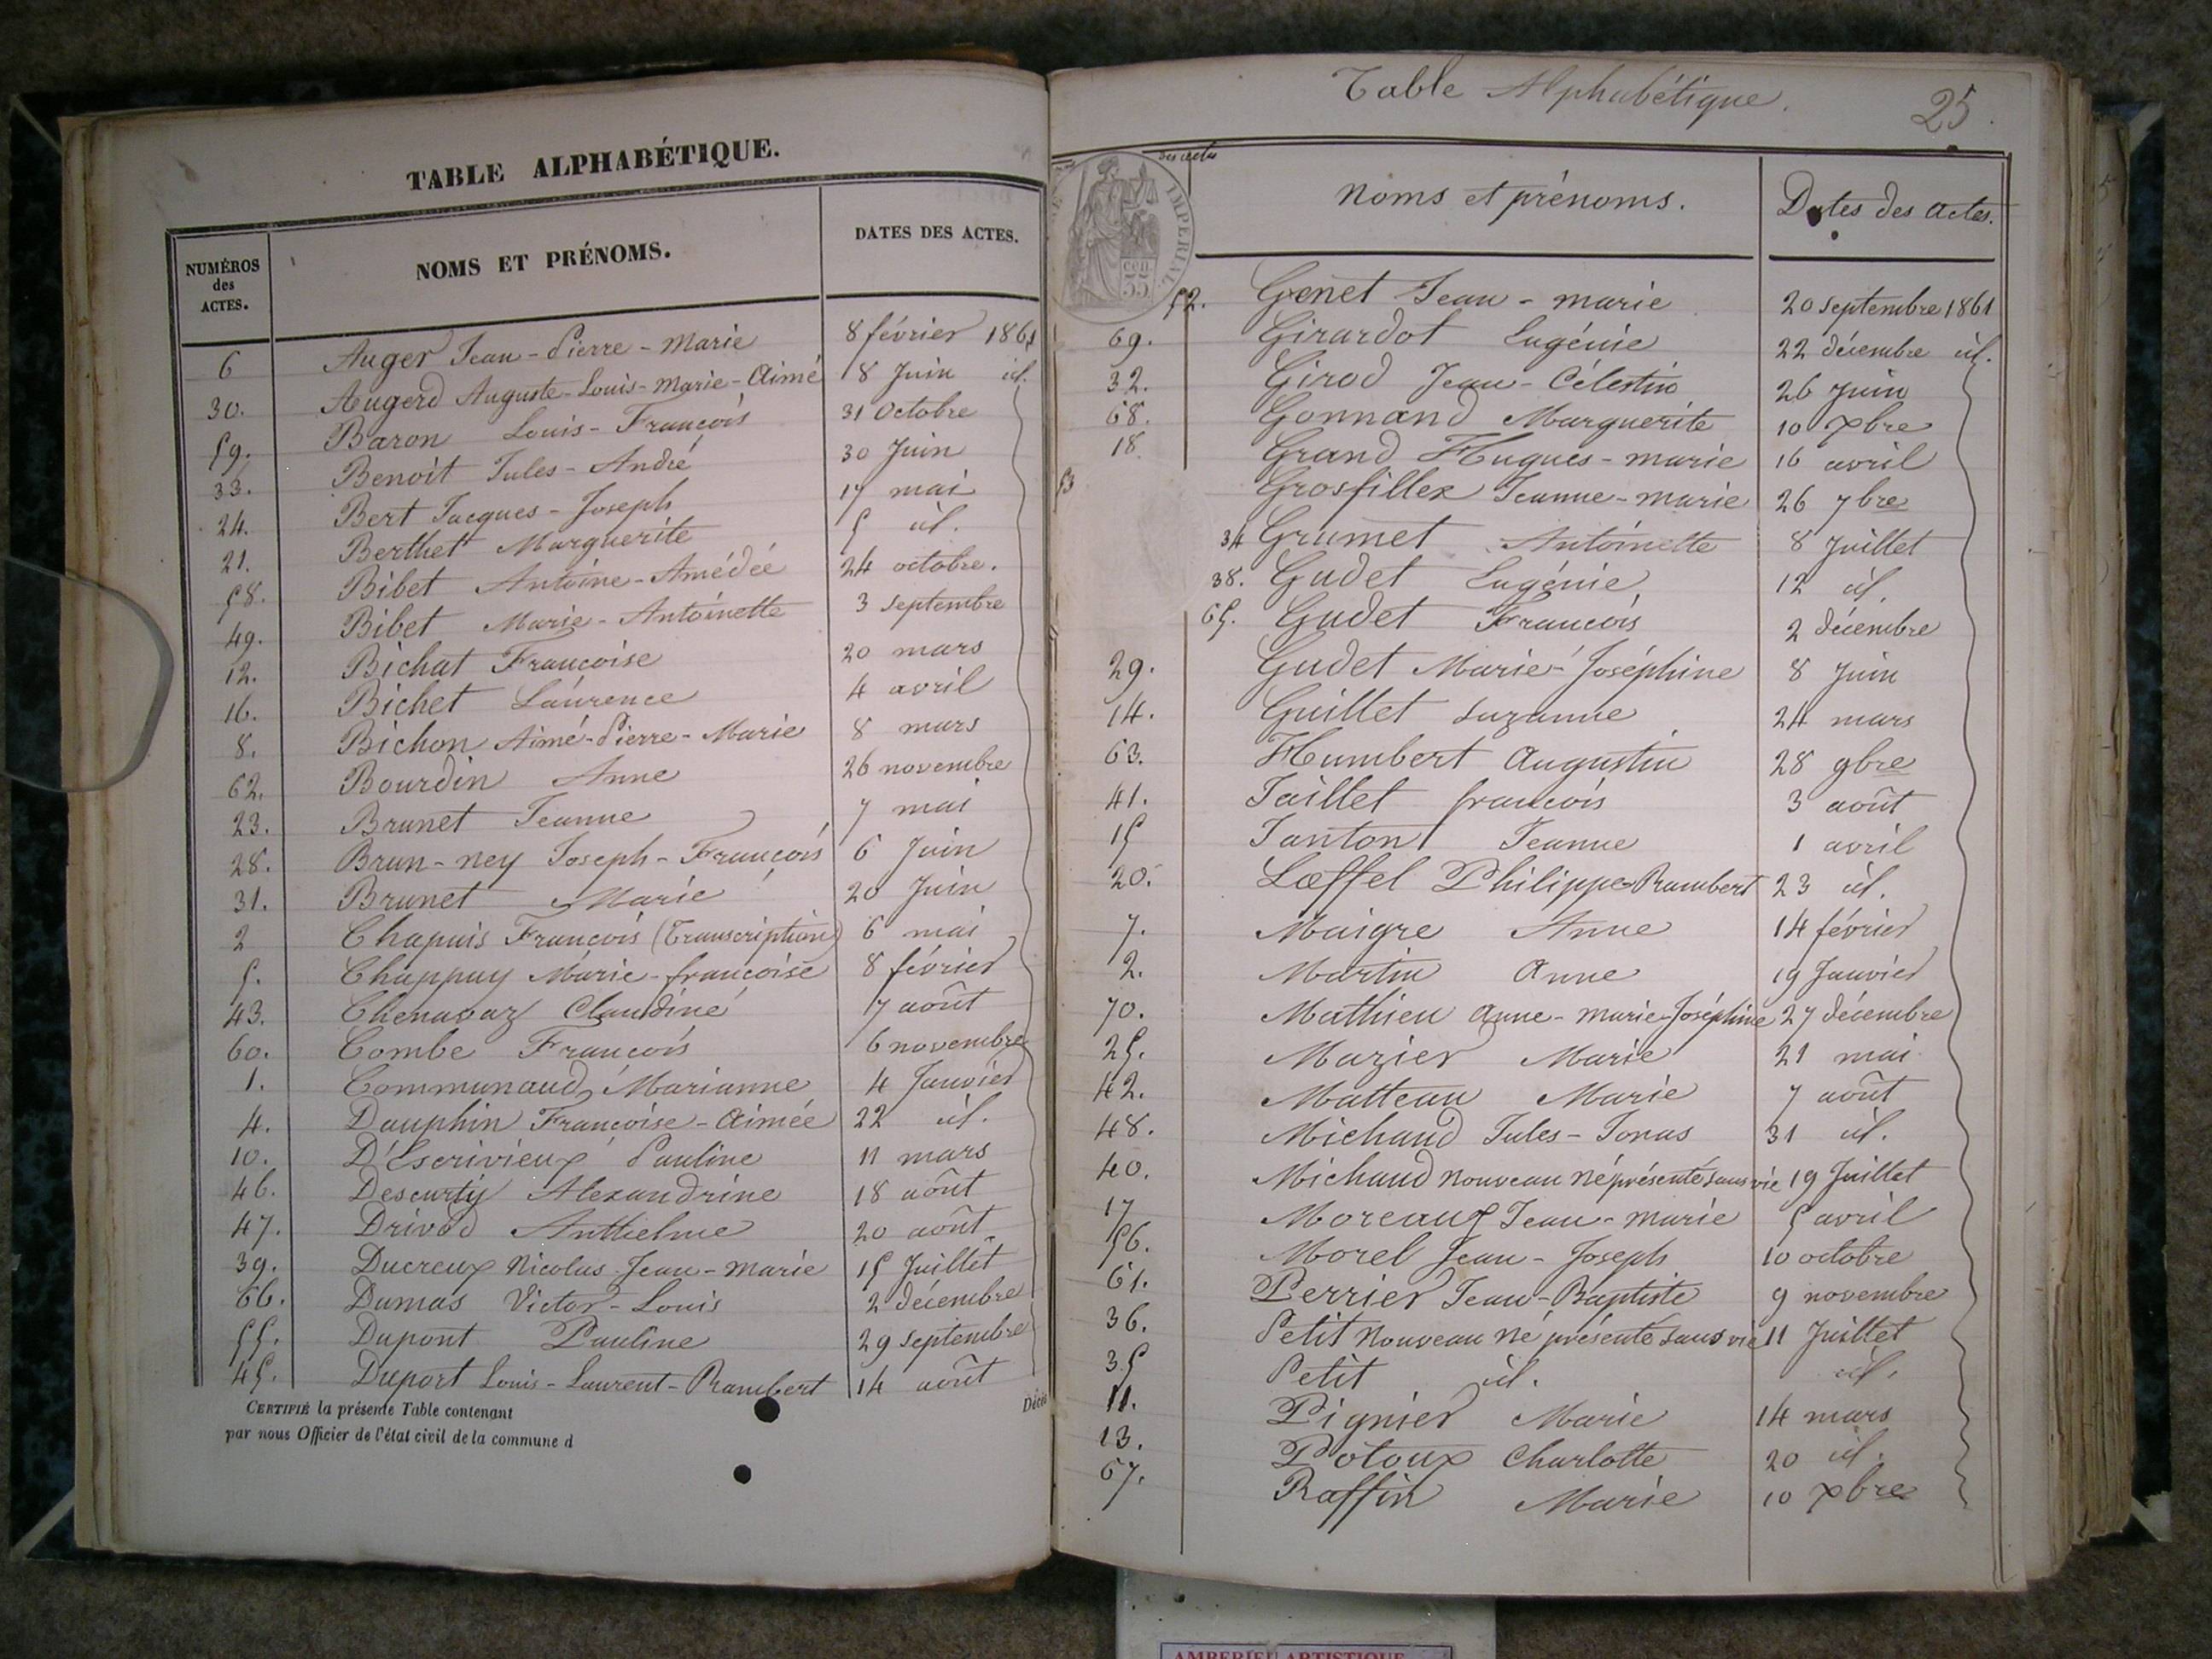 TABLE ALPHABÉTIQUE.
NUMÉROS des ACTES. NOMS ET PRÉNOMS. DATES DES ACTES.
6 Auger Jean-Pierre-Marie 8 février 1861
30. Augerd Auguste-Louis-Marie-Aimé 8 Juin id.
59. Baron Louis-François 31 Octobre
33. Benoit Jules-André 30 Juin
24. Bert Jacques-Joseph 17 mai
21. Berthet Marguerite 5 id.
58. Bibet Antoine-Amédée 24 octobre.
49. Bibet Marie-Antoinette 3 septembre
12. Bichat Françoise 20 mars
16. Bichet Laurence 4 avril
8. Bichon Aimé-Pierre-Marie 8 mars
62. Bourdin Anne 26 novembre
23. Brunet Jeanne 7 mai
28. Brun-ney Joseph-François 6 Juin
31. Brunet Marie 20 Juin
2 Chapuis François (Transcription) 6 mai
5. Chappuy Marie-françoise 8 février
43. Chenavaz Claudine 17 août
60. Combe François 6 novembre
1. Communaud Marianne 4 Janvier
4. Dauphin Françoise-Aimée 22 id.
10. D'Escrivieux Pauline 11 mars
46. Descurty Alexandrine 18 août
47. Drivod Anthelme 20 août
39. Ducreux Nicolas-Jean-marie 15 Juillet
66. Dumas Victor-Louis 2 décembre
55. Dupont Pauline 29 septembre
45. Duport Louis-Laurent-Rambert 14 août
CERTIFIÉ la présente Table contenant
par nous Officier de l'état civil de la commune d
Table Alphabétique. 25.
des actes Noms et prénoms. Dates des actes.
IMPERIAL
52. Genet Jean-marie 20 septembre 1861
69. Girardot Eugénie 22 décembre id.
32. Girod Jean-Célestin 26 Juin
68. Gonnand Marguerite 10 xbre
18. Grand Hugues-marie 16 avril
53 Grosfillex Jeanne-marie 26 7bre
34 Grumet Antoinette 8 Juillet
38. Gudet Eugénie 12 id.
65. Gudet François 2 décembre
29. Gudet Marie-Joséphine 8 Juin
14. Guillet Suzanne 24 mars
63. Humbert Augustin 28 9bre
41. Jaillet françois 3 août
15 Janton Jeanne 1 avril
20. Lœffel Philippe-Rambert 23 id.
7. Maigre Anne 14 février
2. Martin Anne 19 Janvier
70. Mathieu Anne-marie-Joséphine 27 décembre
25. Mazier Marie 21 mai
42. Matteau Marie 7 août
48. Michaud Jules-Jonas 31 id.
40. Michaud nouveau né présenté sans vie 19 Juillet
17 Moreaux Jean-marie 5 avril
56. Morel Jean-Joseph 10 octobre
61. Perrier Jean-Baptiste 9 novembre
36. Petit nouveau né présenté sans vie 11 Juillet
35 Petit id. id.
11. Pignier Marie 14 mars
13. Potoux Charlotte 20 id.
67. Raffin Marie 10 xbre
AMBERIEU ARTISTIQUE